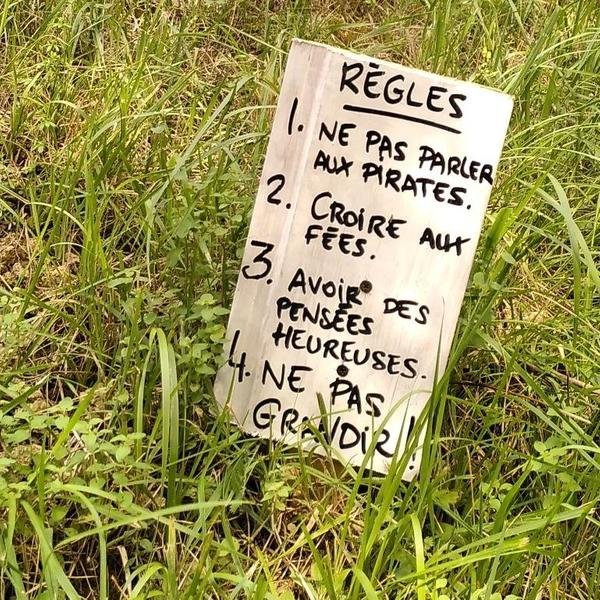 RÈGLES
1. NE PAS PARLER
AUX PIRATES.
2. CROIRE AUX
FÉES.
3. AVOIR DES
PENSÉES
HEUREUSES.
4. NE PAS
GRANDIR!